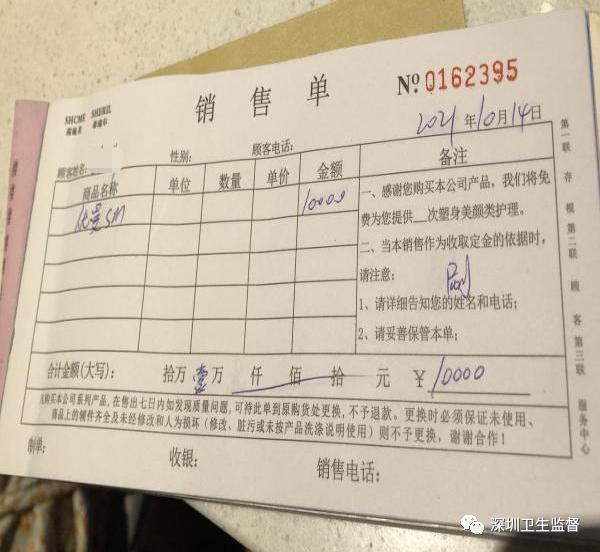 SHCME SHERIL
销售单
№ 0162395
2021年10月14日
顾客姓名: 性别: 顾客电话:
商品名称 单位 数量 单价 金额 备注
能量SM 10000
一、感谢您购买本公司产品，我们将免
费为您提供__次塑身美颜类护理。
二、当本销售作为收取定金的依据时，
请注意:
1、请详细告知您的姓名和电话;
2、请妥善保管本单;
合计金额(大写): 拾万 壹万 仟 佰 拾 元 ¥10000
凡购买本公司系列产品，在售出七日内如发现质量问题，可持此单到原购货处更换，不予退款。更换时必须保证未使用、
商品上的辅件齐全及未经修改和人为损坏（修改、脏污或未按产品洗涤说明使用）则不予更换，谢谢合作！
制单: 收银: 销售电话:
第一联 存根 第二联 顾客 第三联 服务中心
深圳卫生监督